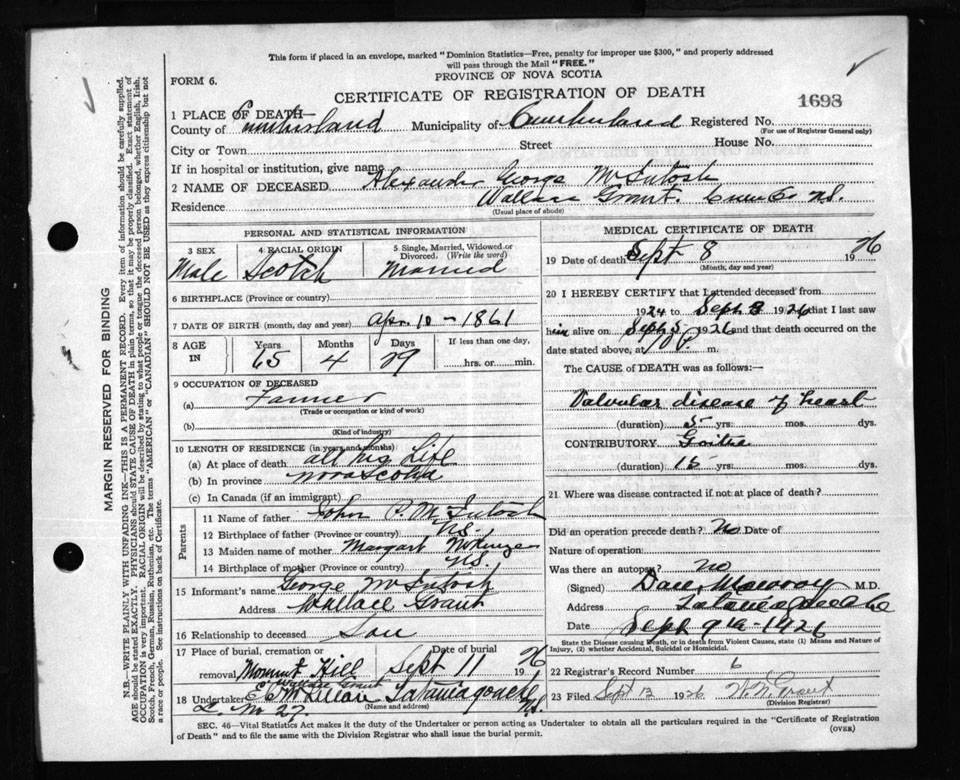 This form if placed in an envelope, marked "Dominion Statistics—Free, penalty for improper use $300," and properly addressed
will pass through the Mail "FREE."
PROVINCE OF NOVA SCOTIA
FORM 6.
CERTIFICATE OF REGISTRATION OF DEATH
1693
1 PLACE OF DEATH—
County of Cumberland Municipality of Cumberland Registered No.
(For use of Registrar General only)
City or Town Street House No.
If in hospital or institution, give name
2 NAME OF DECEASED. Alexander George McIntosh
Residence Wallace Grant. Cum Co NS.
(Usual place of abode)
PERSONAL AND STATISTICAL INFORMATION
3 SEX 4 RACIAL ORIGIN 5 Single, Married, Widowed or
Divorced. (Write the word)
Male Scotch Married
6 BIRTHPLACE (Province or country)
7 DATE OF BIRTH (month, day and year) Apr 10 - 1861
8 AGE IN Years Months Days If less than one day,
65 4 29 hrs. or min.
9 OCCUPATION OF DECEASED
(a) Farmer
(Trade or occupation or kind of work)
(b)
(Kind of industry)
10 LENGTH OF RESIDENCE (in years and months)
(a) At place of death all his life
(b) In province Nova Scotia
(c) In Canada (if an immigrant)
Parents
11 Name of father John P. McIntosh
12 Birthplace of father (Province or country) NS.
13 Maiden name of mother Margart McKenzie
14 Birthplace of mother (Province or country) NS.
15 Informant's name George McIntosh
Address Wallace Grant
16 Relationship to deceased Son
17 Place of burial, cremation or Date of burial
removal Mount Hill Sept 11 1926
Wallace Grant
18 Undertaker Tatamagouche
NS.
(Name and address)
No 27
MEDICAL CERTIFICATE OF DEATH
19 Date of death Sept 8 1926
(Month, day and year)
20 I HEREBY CERTIFY that I attended deceased from
1924 to Sept 8 1926 that I last saw
him alive on Sept 5 1926 and that death occurred on the
date stated above, at 10 P. m.
The CAUSE of DEATH was as follows:—
Valvular disease of heart
(duration) 5 yrs. mos. dys.
CONTRIBUTORY Goitre
(duration) 15 yrs. mos. dys.
21 Where was disease contracted if not at place of death?
Did an operation precede death? No Date of
Nature of operation:
Was there an autopsy? no
(Signed) Dan Murray M.D.
Address Tatamagouche
Date Sept 9th - 1926
State the Disease causing Death, or in death from Violent Causes, state (1) Means and Nature
of Injury, (2) whether Accidental, Suicidal or Homicidal.
22 Registrar's Record Number 6
23 Filed Sept 12 1926 W. N. Grant
(Division Registrar)
SEC. 46—Vital Statistics Act makes it the duty of the Undertaker or person acting as Undertaker to obtain all the particulars required in the "Certificate of Registration
of Death" and to file the same with the Division Registrar who shall issue the burial permit.
(OVER)
MARGIN RESERVED FOR BINDING
N.B.—WRITE PLAINLY WITH UNFADING INK—THIS IS A PERMANENT RECORD. Every item of information should be carefully supplied.
AGE should be stated EXACTLY. PHYSICIANS should STATE CAUSE OF DEATH in plain terms, so that it may be properly classified. Exact statement of
OCCUPATION is very important. RACIAL ORIGIN will be described by stating to what people or tongue the deceased person belonged, whether English, Irish,
Scotch, French, German, Russian, Ruthenian, etc. The terms "AMERICAN" or "CANADIAN" SHOULD NOT BE USED as they express citizenship but not
a race or people. See instructions on back of Certificate.